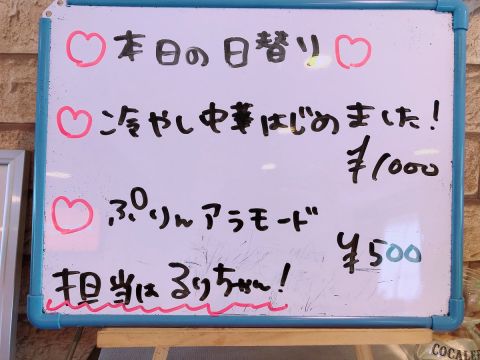 ♡本日の日替り♡
♡冷やし中華はじめました!
¥1000
♡ぷりんアラモード
¥500
担当はるりちゃん!